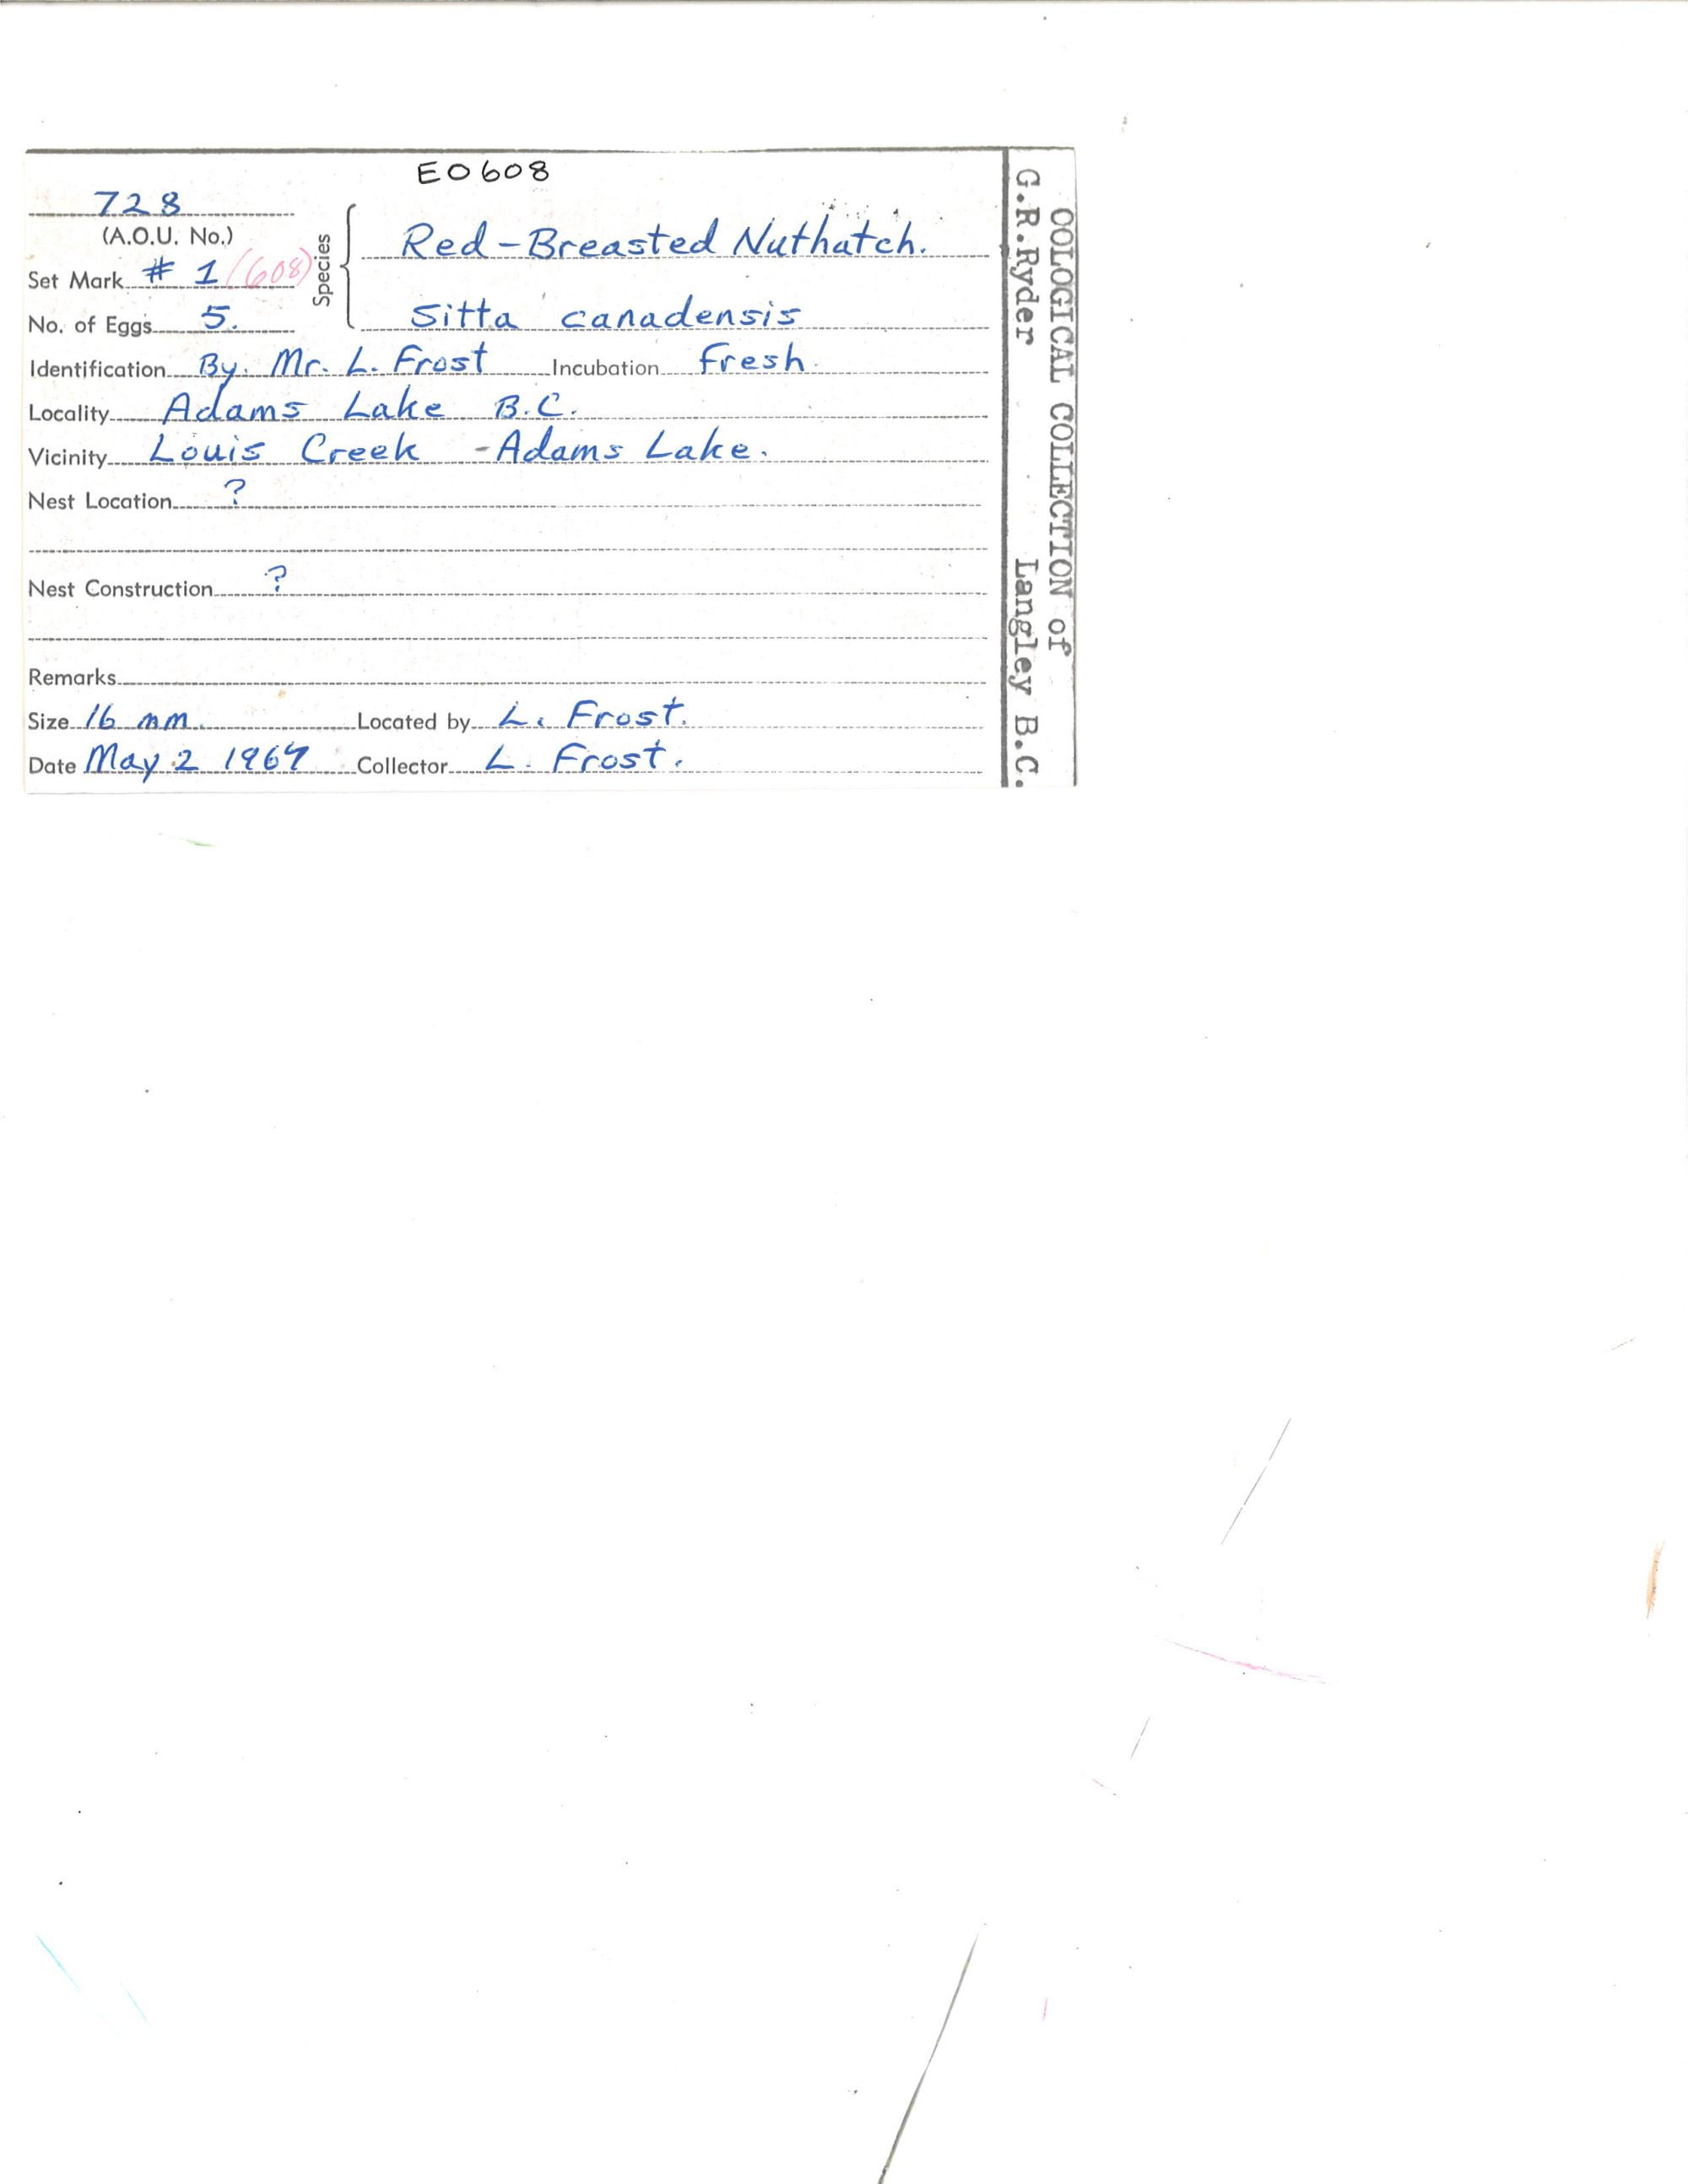 E0608
728
(A.O.U. No.)
Set Mark # 1 (608)
No. of Eggs 5.
Species
Red-Breasted Nuthatch.
Sitta canadensis
Identification By. Mr. L. Frost Incubation fresh.
Locality Adams Lake B.C.
Vicinity Louis Creek - Adams Lake.
Nest Location ?
Nest Construction ?
Remarks
Size 16 mm. Located by L. Frost.
Date May 2 Collector L. Frost.
OOLOGICAL COLLECTION of
G.R.Ryder Langley B.C.